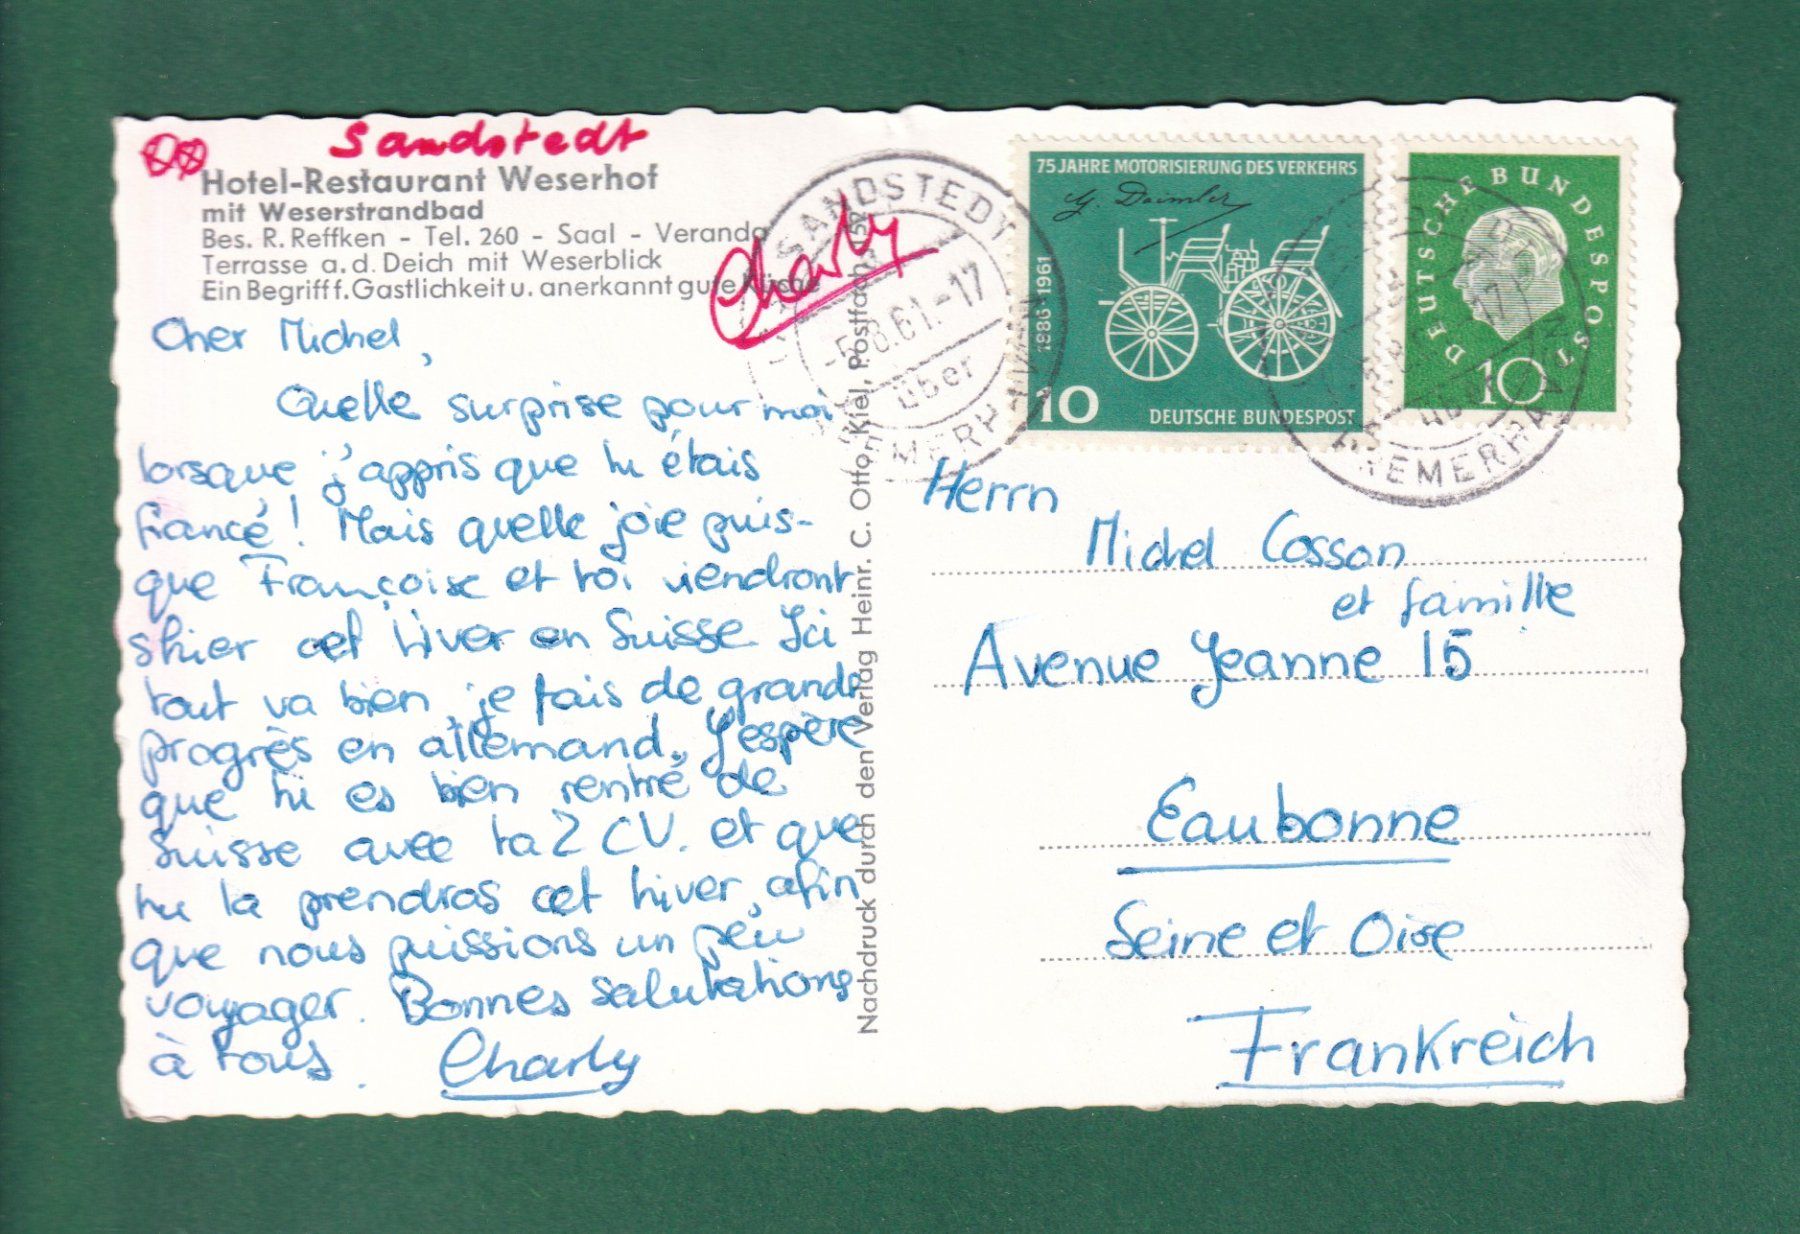 Sandstedt
Hotel-Restaurant Weserhof
mit Weserstrandbad
Bes. R. Reffken - Tel. 260 - Saal - Veranda
Terrasse a. d. Deich mit Weserblick
Ein Begriff f. Gastlichkeit u. anerkannt gute Küche
Charly
Cher Michel,
Quelle surprise pour moi
lorsque j'appris que tu étais
fiancé! Mais quelle joie puis-
que Françoise et toi viendront
skier cet hiver en Suisse. Ici
tout va bien, je fais de grands
progrès en allemand. J'espère
que tu es bien rentré de
Suisse avec ta 2 CV. et que
tu la prendras cet hiver, afin
que nous puissions un peu
voyager. Bonnes salutations
à tous. Charly
Nachdruck durch den Verlag Heinr. C. Otto, Kiel, Postfach 152
SANDSTEDT
-5.8.61.-17
über
BREMERHAVEN
75 JAHRE MOTORISIERUNG DES VERKEHRS
G. Daimler
1886 1961
10
DEUTSCHE BUNDESPOST
DEUTSCHE BUNDESPOST
10
17
über
BREMERHAVEN
Herrn
Michel Cosson
et famille
Avenue Jeanne 15
Eaubonne
Seine et Oise
Frankreich